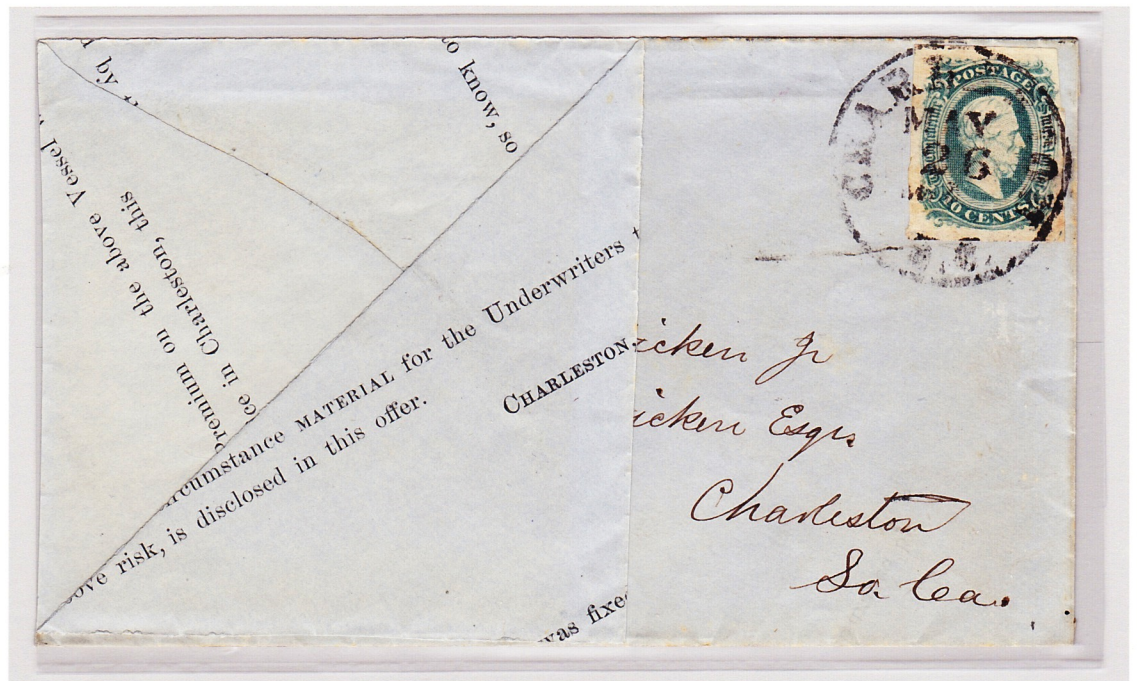 by
to know, so
Premium on the above Vessel
ce in Charleston, this
rcumstance MATERIAL for the Underwriters t
ove risk, is disclosed in this offer.
CHARLESTON,
was fixe
POSTAGE
10 CENTS
CHARL
6
S.C.
icken Jr
icken Esqrs
Charleston
So Ca.